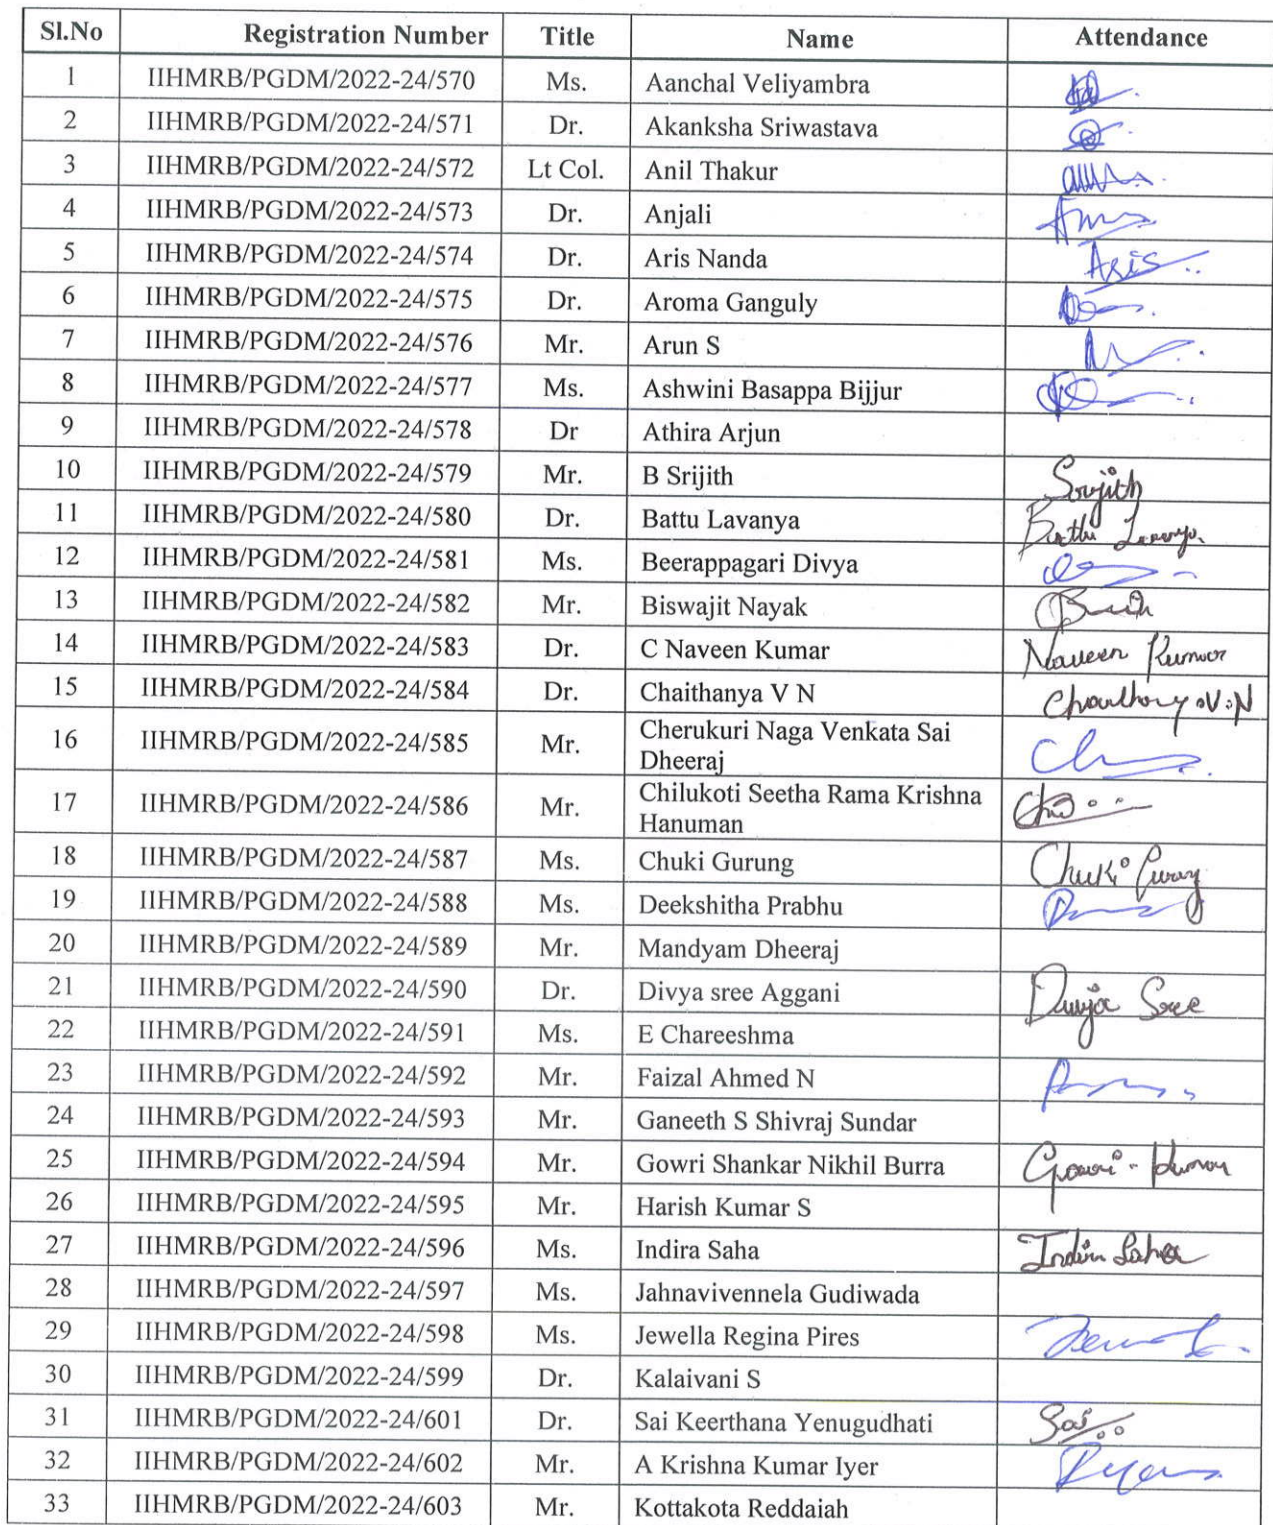 Sl.No Registration Number Title Name Attendance
1 IIHMRB/PGDM/2022-24/570 Ms. Aanchal Veliyambra
2 IIHMRB/PGDM/2022-24/571 Dr. Akanksha Sriwastava
3 IIHMRB/PGDM/2022-24/572 Lt Col. Anil Thakur
4 IIHMRB/PGDM/2022-24/573 Dr. Anjali
5 IIHMRB/PGDM/2022-24/574 Dr. Aris Nanda Aris
6 IIHMRB/PGDM/2022-24/575 Dr. Aroma Ganguly
7 IIHMRB/PGDM/2022-24/576 Mr. Arun S
8 IIHMRB/PGDM/2022-24/577 Ms. Ashwini Basappa Bijjur
9 IIHMRB/PGDM/2022-24/578 Dr Athira Arjun
10 IIHMRB/PGDM/2022-24/579 Mr. B Srijith Srijith
11 IIHMRB/PGDM/2022-24/580 Dr. Battu Lavanya Battu Lavanya.
12 IIHMRB/PGDM/2022-24/581 Ms. Beerappagari Divya
13 IIHMRB/PGDM/2022-24/582 Mr. Biswajit Nayak
14 IIHMRB/PGDM/2022-24/583 Dr. C Naveen Kumar Naveen Kumar
15 IIHMRB/PGDM/2022-24/584 Dr. Chaithanya V N V.N
16 IIHMRB/PGDM/2022-24/585 Mr. Cherukuri Naga Venkata Sai
Dheeraj
17 IIHMRB/PGDM/2022-24/586 Mr. Chilukoti Seetha Rama Krishna
Hanuman
18 IIHMRB/PGDM/2022-24/587 Ms. Chuki Gurung Chuki Gurung
19 IIHMRB/PGDM/2022-24/588 Ms. Deekshitha Prabhu
20 IIHMRB/PGDM/2022-24/589 Mr. Mandyam Dheeraj
21 IIHMRB/PGDM/2022-24/590 Dr. Divya sree Aggani Divya Sree
22 IIHMRB/PGDM/2022-24/591 Ms. E Chareeshma
23 IIHMRB/PGDM/2022-24/592 Mr. Faizal Ahmed N
24 IIHMRB/PGDM/2022-24/593 Mr. Ganeeth S Shivraj Sundar
25 IIHMRB/PGDM/2022-24/594 Mr. Gowri Shankar Nikhil Burra Gowri - Kumar
26 IIHMRB/PGDM/2022-24/595 Mr. Harish Kumar S
27 IIHMRB/PGDM/2022-24/596 Ms. Indira Saha Indira Saha
28 IIHMRB/PGDM/2022-24/597 Ms. Jahnavivennela Gudiwada
29 IIHMRB/PGDM/2022-24/598 Ms. Jewella Regina Pires
30 IIHMRB/PGDM/2022-24/599 Dr. Kalaivani S
31 IIHMRB/PGDM/2022-24/601 Dr. Sai Keerthana Yenugudhati Sai
32 IIHMRB/PGDM/2022-24/602 Mr. A Krishna Kumar Iyer
33 IIHMRB/PGDM/2022-24/603 Mr. Kottakota Reddaiah